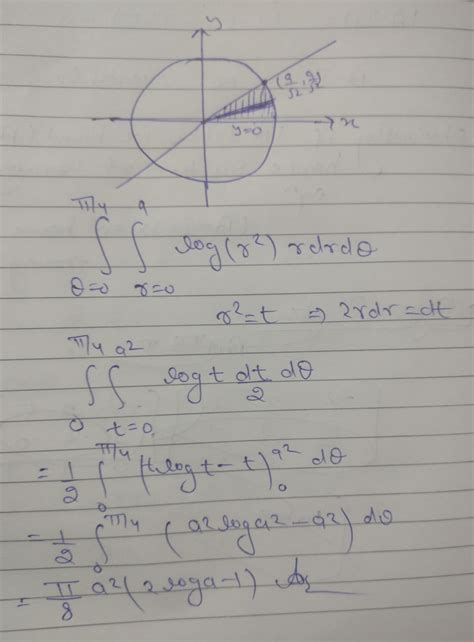 y
(a/√2, a/√2)
y=0
x
∫_{θ=0}^{π/4} ∫_{r=0}^{a} log(r²) r dr dθ
r² = t ⇒ 2rdr = dt
∫_{0}^{π/4} ∫_{t=0}^{a²} log t dt/2 dθ
= 1/2 ∫_{0}^{π/4} (t log t - t)_{0}^{a²} dθ
= 1/2 ∫_{0}^{π/4} (a² log a² - a²) dθ
= π/8 a² (2 log a - 1) Ans